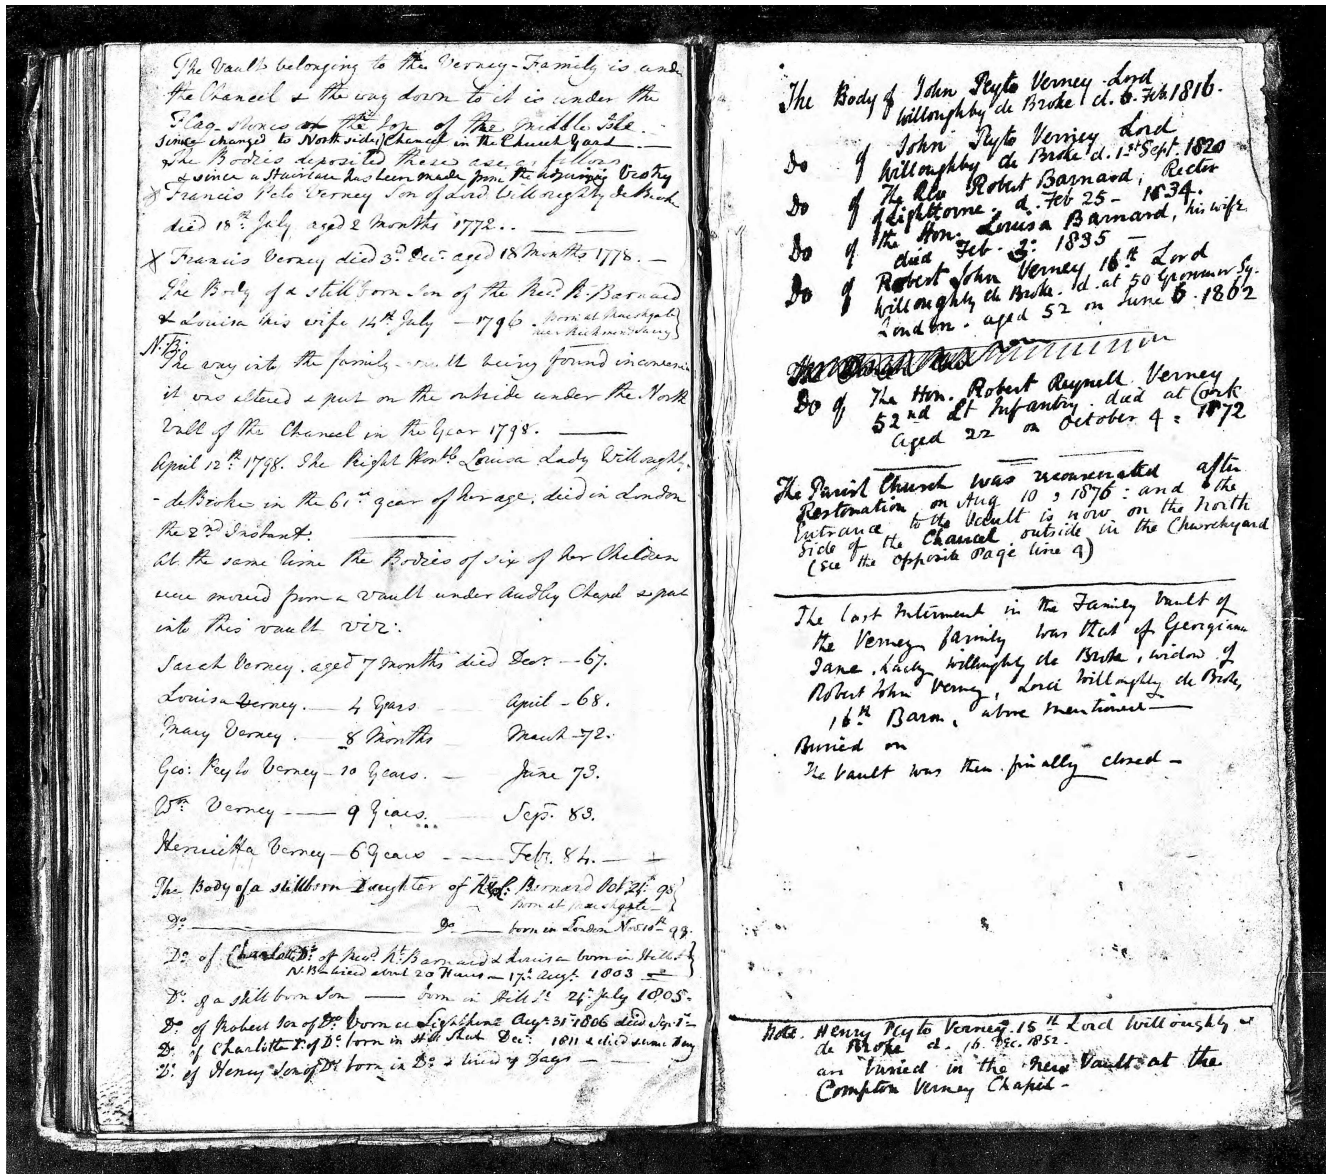 The Vault belonging to the Verney-Family is unde
the Chancel & the way down to it is under the
Flag-stones at the top of the middle Isle.
since changed to North side of Chancel in the Church Yard
The Bodies deposited there are as follows
& since a Staircase has been made from the adjoining Vestry
X Francis Peto Verney Son of Lord Willoughby de Broke
died 18th July aged 2 Months 1772.
X Francis Verney died 3d Decr aged 18 Months 1778. —
The Body of a stillborn Son of the Revd R. Barnard
& Louisa his wife 14th July — 1796. born at Marshgate
near Richmond Surry
N:B:
The way into the family-vault being found inconvenie
it was altered & put on the outside under the North
Wall of the Chancel in the Year 1798. —
April 12th 1798. The Right Honble Louisa Lady Willoughby
-de Broke in the 61st year of her age, died in London
the 2nd Instant.
At the same time the Bodies of six of her Children
were moved from a vault under Audley Chapel & put
into this vault viz:
Sarah Verney. aged 7 months died Decr — 67.
Louisa Verney. — 4 Years April — 68.
Mary Verney. — 8 Months March — 72.
Geo: Peyto Verney — 10 Years. — June 73.
Wm Verney — 9 Years. Sept. 83.
Henrietta Verney — 6 Years — Febr. 84. —
The Body of a stillborn Daughter of R & L: Bernard Oct 24th 98
born at Marshgate
Do — Do — born in London Novr 10th 99.
Do of Charlotte Dr of Revd Rt Barnard & Louisa born in Hill St
N.B. lived about 20 Hours — 17th Augt 1803
Do of a still born Son — born in Hill St 24th July 1805.
Do of Robert Son of Do born at Lighthorne Augt 31st 1806 died Sep: 1st
Do of Charlotte D. of Do born in Hill Street Decr 1811 & died same Day
Do of Henry Son of Do born in Do & lived 9 Days —
The Body of John Peyto Verney Lord
Willoughby de Broke d. 6. Feb 1816.
Do of John Peyto Verney Lord
Willoughby de Broke d. 1st Sept. 1820
Do of The Rev Robert Barnard, Rector
of Lighthorne. d. Feb 25 - 1834.
Do of the Hon. Louisa Barnard, his wife
died Feb. 3: 1835
Do of Robert John Verney 16th Lord
Willoughby de Broke. d. at 50 Grosvenor Sq.
London. aged 52 on June 6. 1862
Do of The Hon. Robert Reynell Verney
52nd Lt Infantry. died at Cork
aged 22 on October 4: 1872
The Parish Church was reconsecrated after
Restoration on Aug 10, 1876: and the
Entrance to the Vault is now on the North
Side of the Chancel outside in the Churchyard
(see the opposite page line 4)
The last Interment in the Family Vault of
the Verney family was that of Georgiana
Jane, Lady Willoughby de Broke, widow of
Robert John Verney, Lord Willoughby de Broke,
16th Baron, above mentioned —
Buried on
The Vault was then finally closed —
Note. Henry Peyto Verney. 15th Lord Willoughby
de Broke d. 16. Dec. 1852.
are buried in the New Vault at the
Compton Verney Chapel —